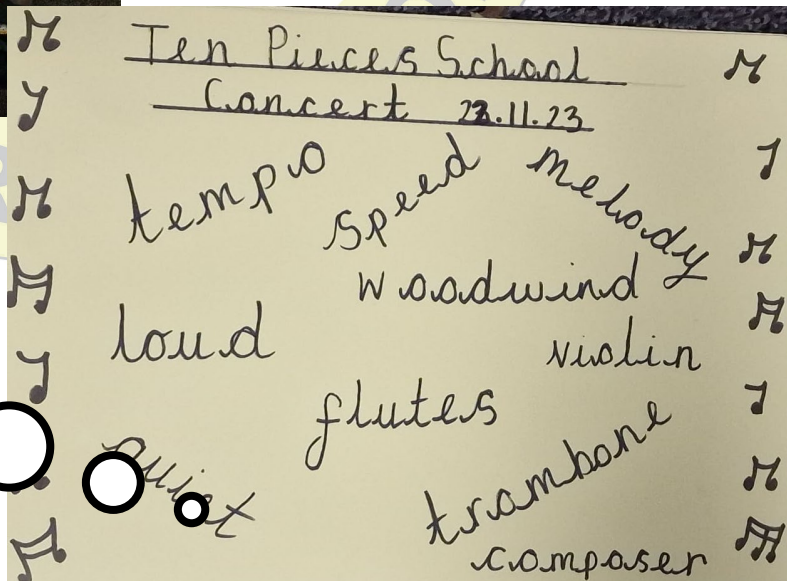 Ten Pieces School
Concert 23.11.23
tempo
speed
melody
woodwind
loud
violin
flutes
quiet
trombone
composer